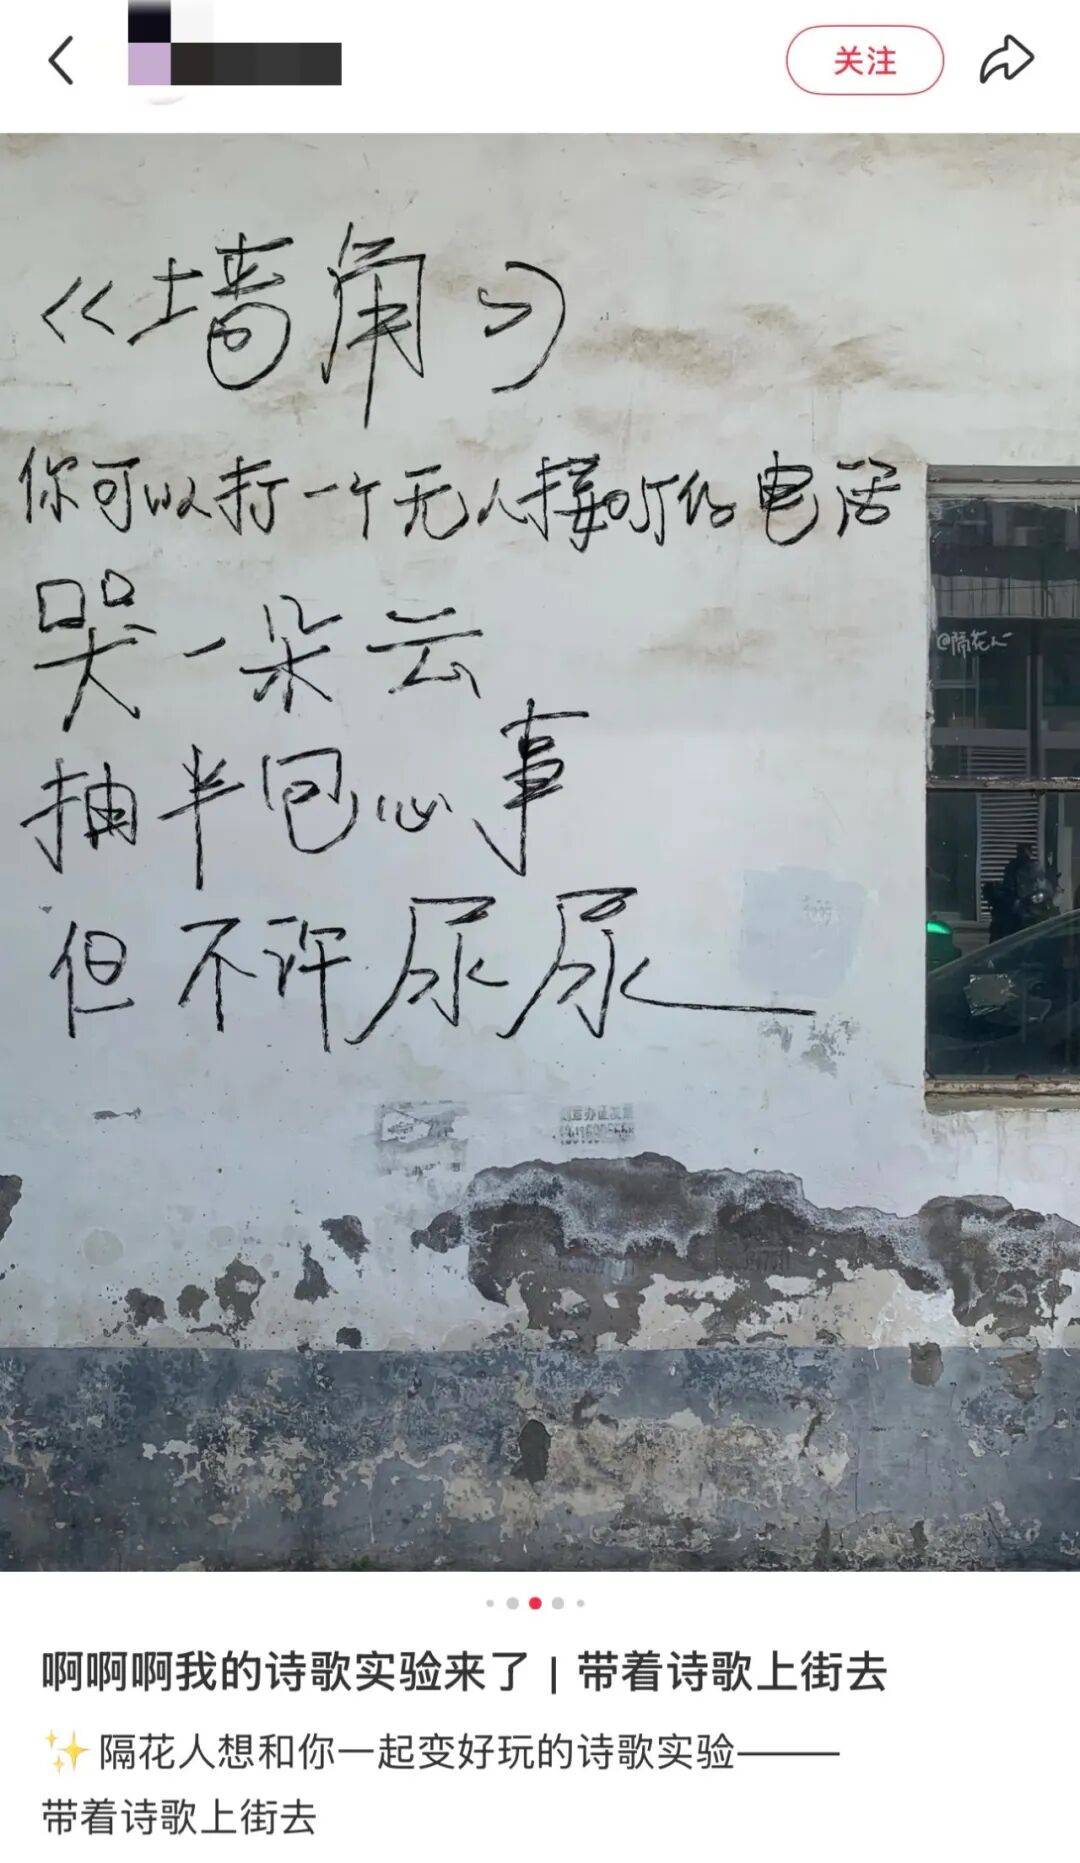 关注
《墙角》
你可以打一个无人接听的电话
哭一朵云
抽半包心事
但不许尿尿
@隔花人
啊啊啊我的诗歌实验来了 | 带着诗歌上街去
✨隔花人想和你一起变好玩的诗歌实验———
带着诗歌上街去